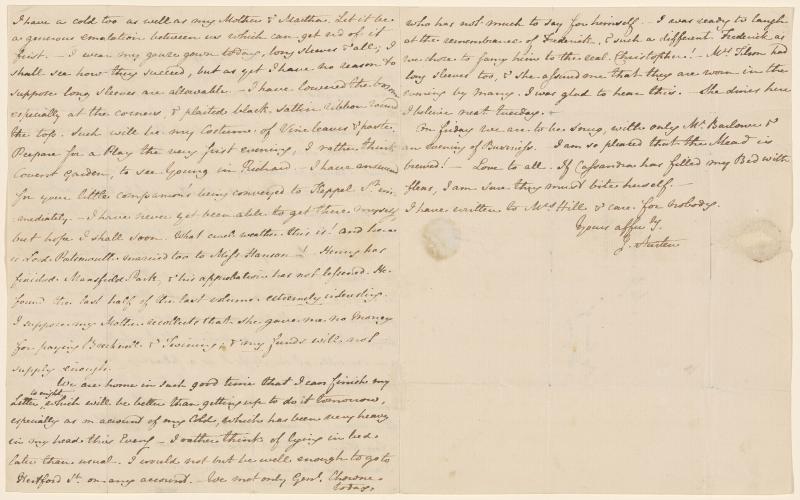 I have a cold too as well as my Mother & Martha. Let it be
a generous emulation between us which can get rid of it
first. – I wear my gauze gown today, long sleeves & all; I
shall see how they succeed, but as yet I have no reason to
suppose long sleeves are allowable. – I have lowered the bosom
especially at the corners, & plaited black sattin ribbon round
the top. Such will be my Costume of Vine leaves & paste.
Prepare for a Play the very first evening, I rather think
Covent Garden, to see Young in Richard. – I have answered
for your little companion's being conveyed to Keppel St. im-
mediately. – I have never yet been able to get there myself
but hope I shall soon. What cruel weather this is! and here
is Lord Portsmouth married too to Miss Hanson –! – Henry has
finished Mansfield Park, & his approbation has not lessened. He
found the last half of the last volume extremely interesting.
I suppose my Mother recollects that she gave me no Money
for paying Brecknell & Twining; & my funds will not
supply enough. –
We are home in such good time that I can finish my
Letter to night, which will be better than getting up to do it tomorrow,
especially as on account of my Cold, which has been very heavy
in my head this Eveng – I rather think of lying in bed
later than usual. I would not but be well enough to go to
Hertford St. on any account. – We met only Genl. Chowne
today,
who has not much to say for himself. – I was ready to laugh
at the remembrance of Frederick, & such a different Frederick as
we chose to fancy him to the real Christopher! – Mrs. Tilson had
long sleeves too, & she assured me that they are worn in the
evening by many. I was glad to hear this. – She dines here
I beleive next tuesday. –
On friday we are to be snug, with only Mr. Barlowe &
an evening of Business. – I am so pleased that the Mead is
brewed! – Love to all. If Cassandra has filled my Bed with
fleas, I am sure they must bite herself. –
I have written to Mrs. Hill & care for nobody.
Yours affecly.
J. Austen